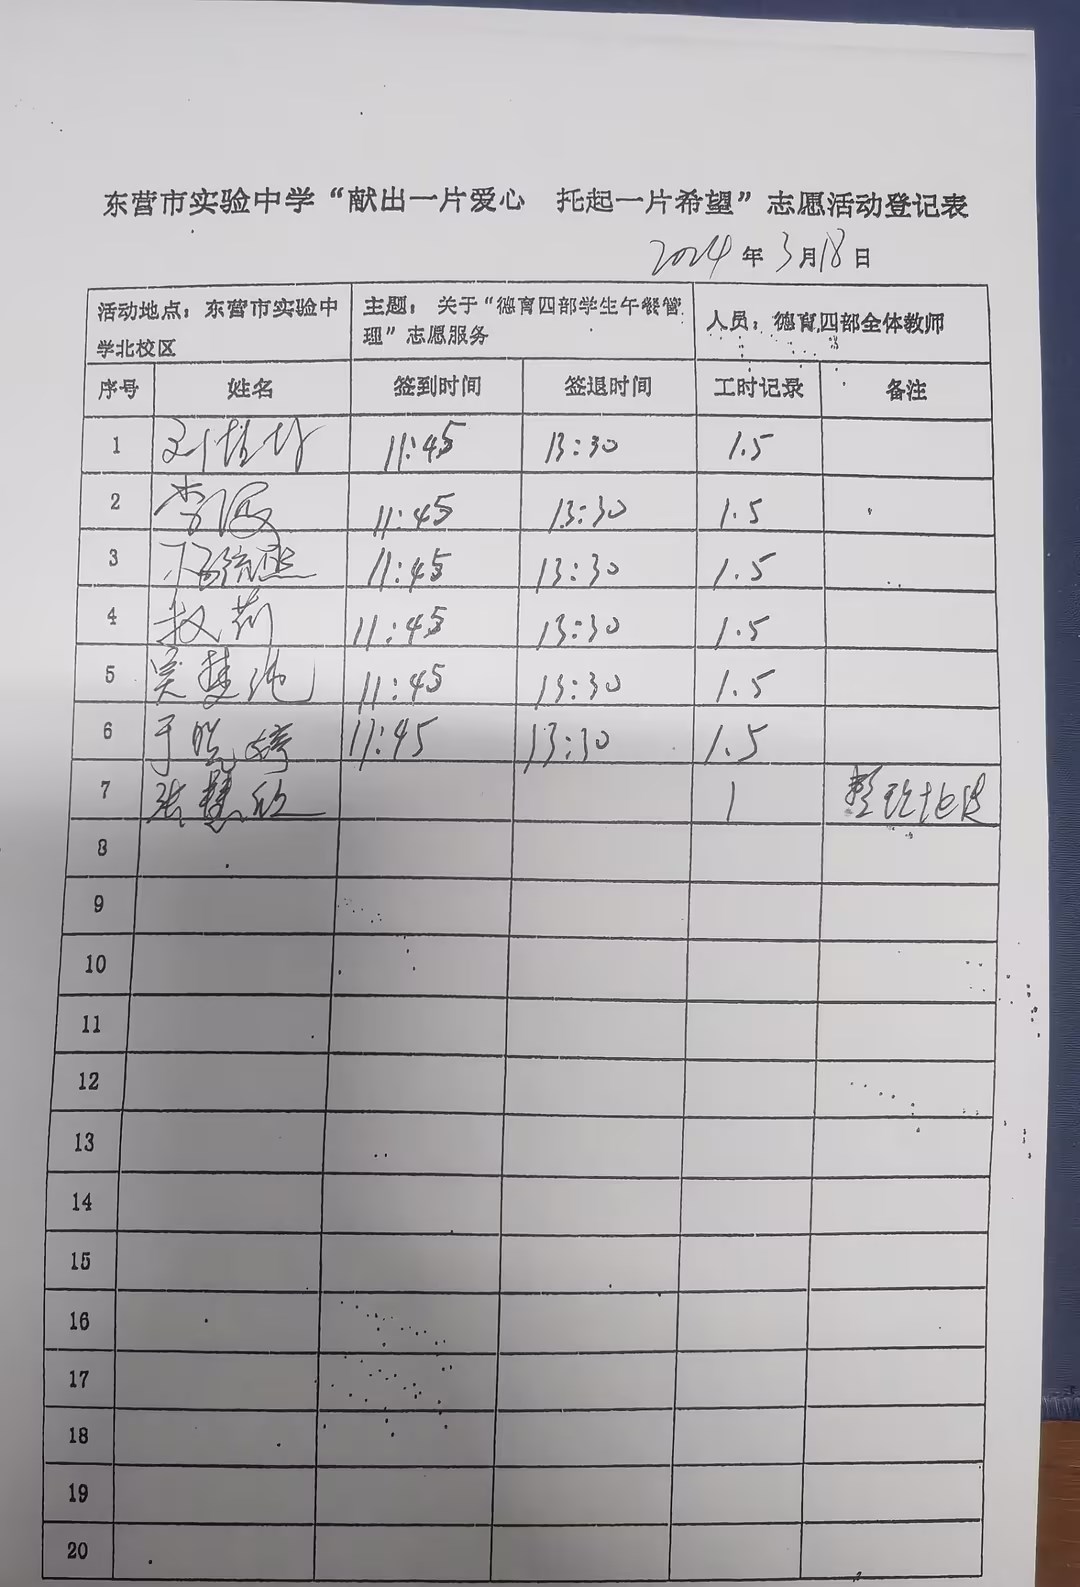 东营市实验中学“献出一片爱心 托起一片希望”志愿活动登记表
2024年3月18日
活动地点：东营市实验中学北校区 主题：关于“德育四部学生午餐管理”志愿服务 人员：德育四部全体教师
序号 姓名 签到时间 签退时间 工时记录 备注
1 刘 11:45 13:30 1.5
2 李 11:45 13:30 1.5
3 11:45 13:30 1.5
4 赵莉 11:45 13:30 1.5
5 11:45 13:30 1.5
6 于晓婷 11:45 13:30 1.5
7 张慧欣 1 整理
8
9
10
11
12
13
14
15
16
17
18
19
20